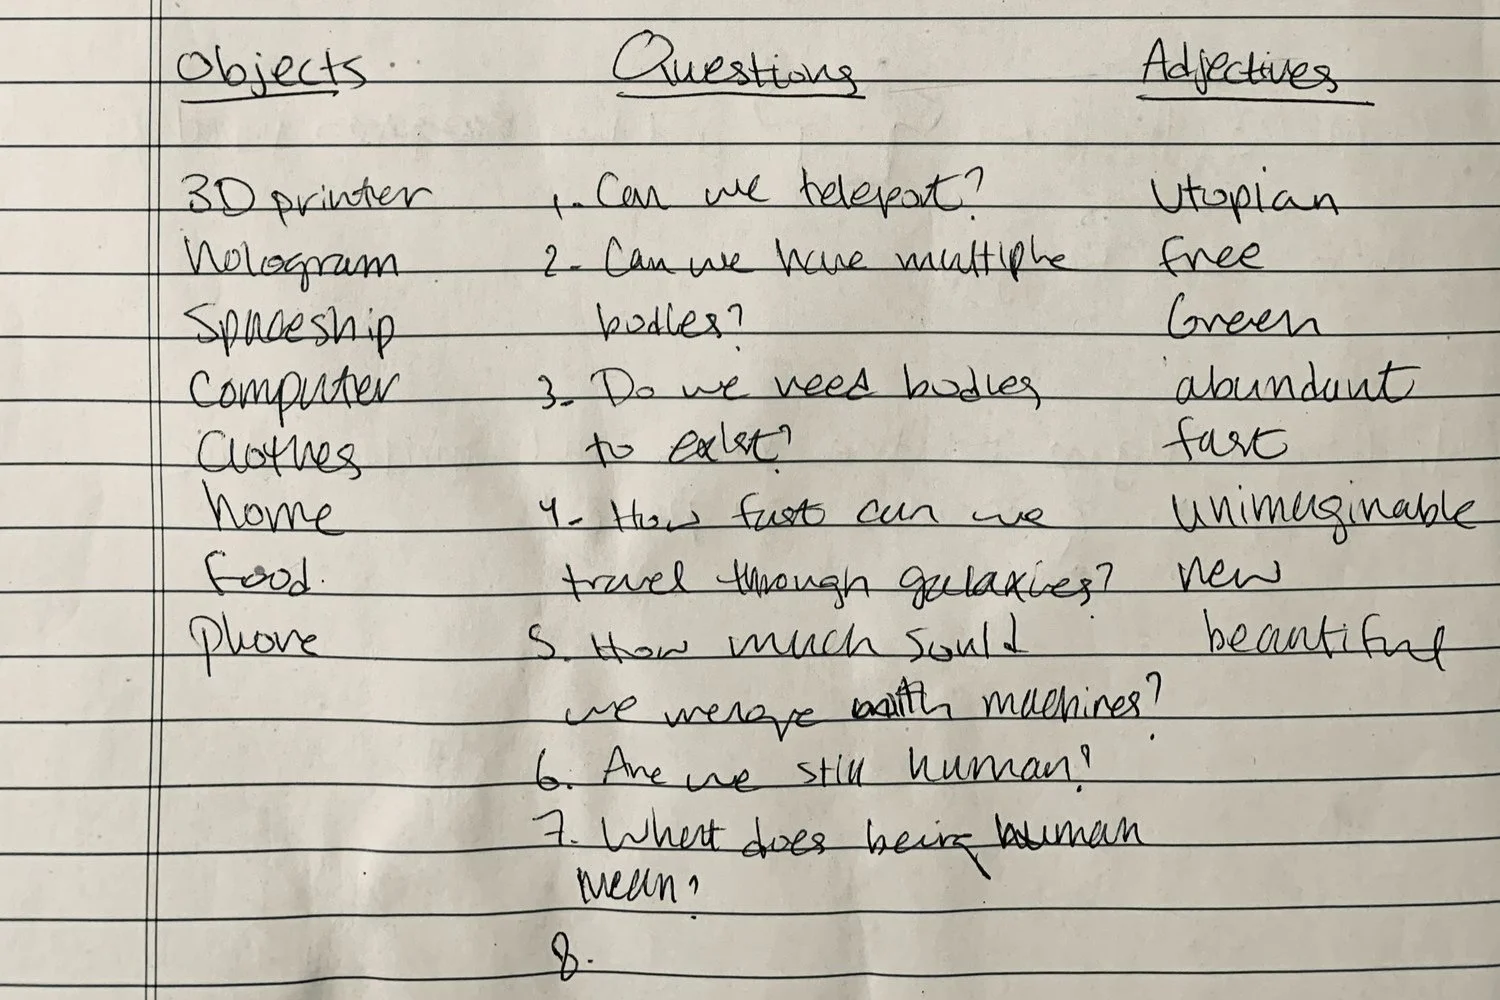 Objects Questions Adjectives
3D printer 1. Can we teleport? Utopian
hologram 2- Can we have multiple free
Spaceship bodies? Green
Computer 3- Do we need bodies abundant
Clothes to exist? fast
home 4- How fast can we unimaginable
food. travel through galaxies? new
phone 5. How much sould beautiful
we merge with machines?
6. Are we still human?
7. What does being human
mean?
8.